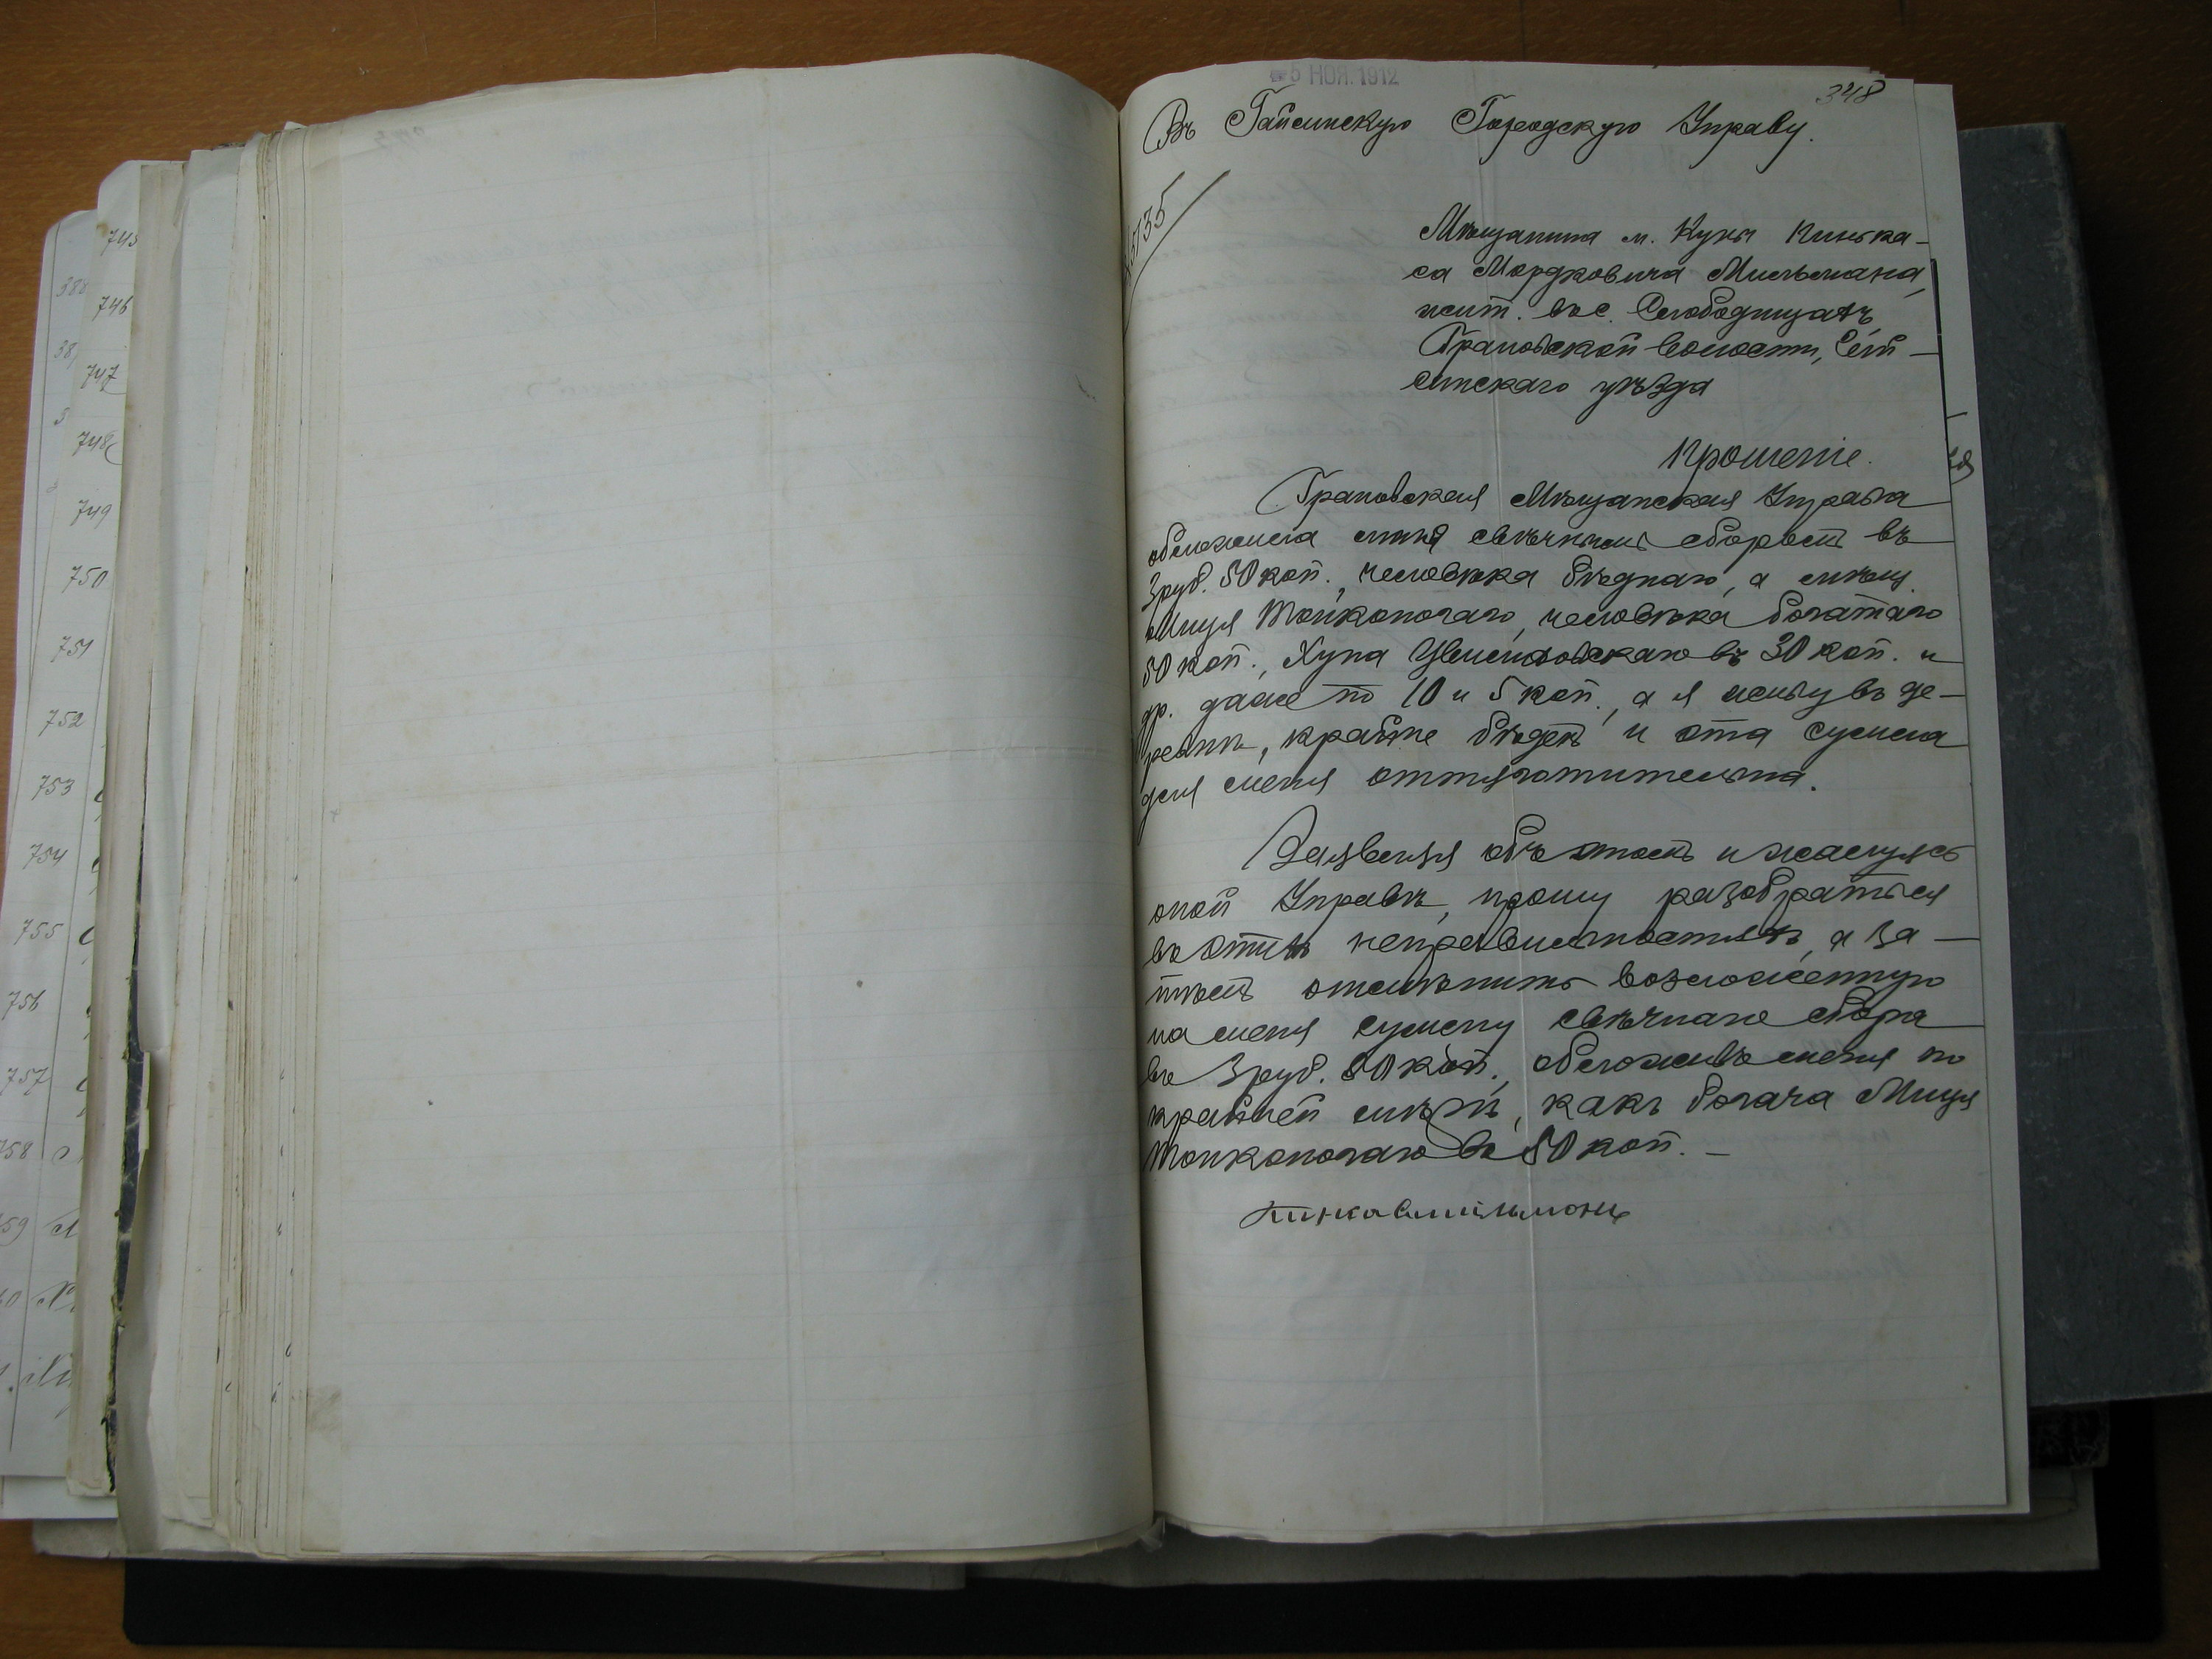 5 НОЯ. 1912
348
Въ Гайсинскую Городскую Управу.
5135
Мѣщанина м. Куны Пинька-
са Мордковича Мильмана,
жит. въ с. Слободищахъ,
Грановской волости, Гай-
синскаго уѣзда
Прошеніе.
Грановская Мѣщанская Управа
обложила меня свѣчнымъ сборомъ въ
3 руб. 50 коп., человѣка бѣднаго, а
Миця Тонконогаго, человѣка богатаго
50 коп., Хуна въ 30 коп. и
др. даже по 10 и 5 коп., а я живу въ де-
ревнѣ, крайне бѣденъ и эта сумма
для меня отяготительна.
Заявляя объ этомъ и жалуясь
оной Управѣ, прошу разобраться
въ этихъ неправильностяхъ, а за-
тѣмъ отмѣнить возложенную
на меня сумму свѣчнаго сбора
въ 3 руб. 50 коп., обложивъ меня по
крайней мѣрѣ, какъ богача Миця
Тонконогаго въ 50 коп. -
745
746
747
748
749
750
751
752
753
754
755
756
757
758
759